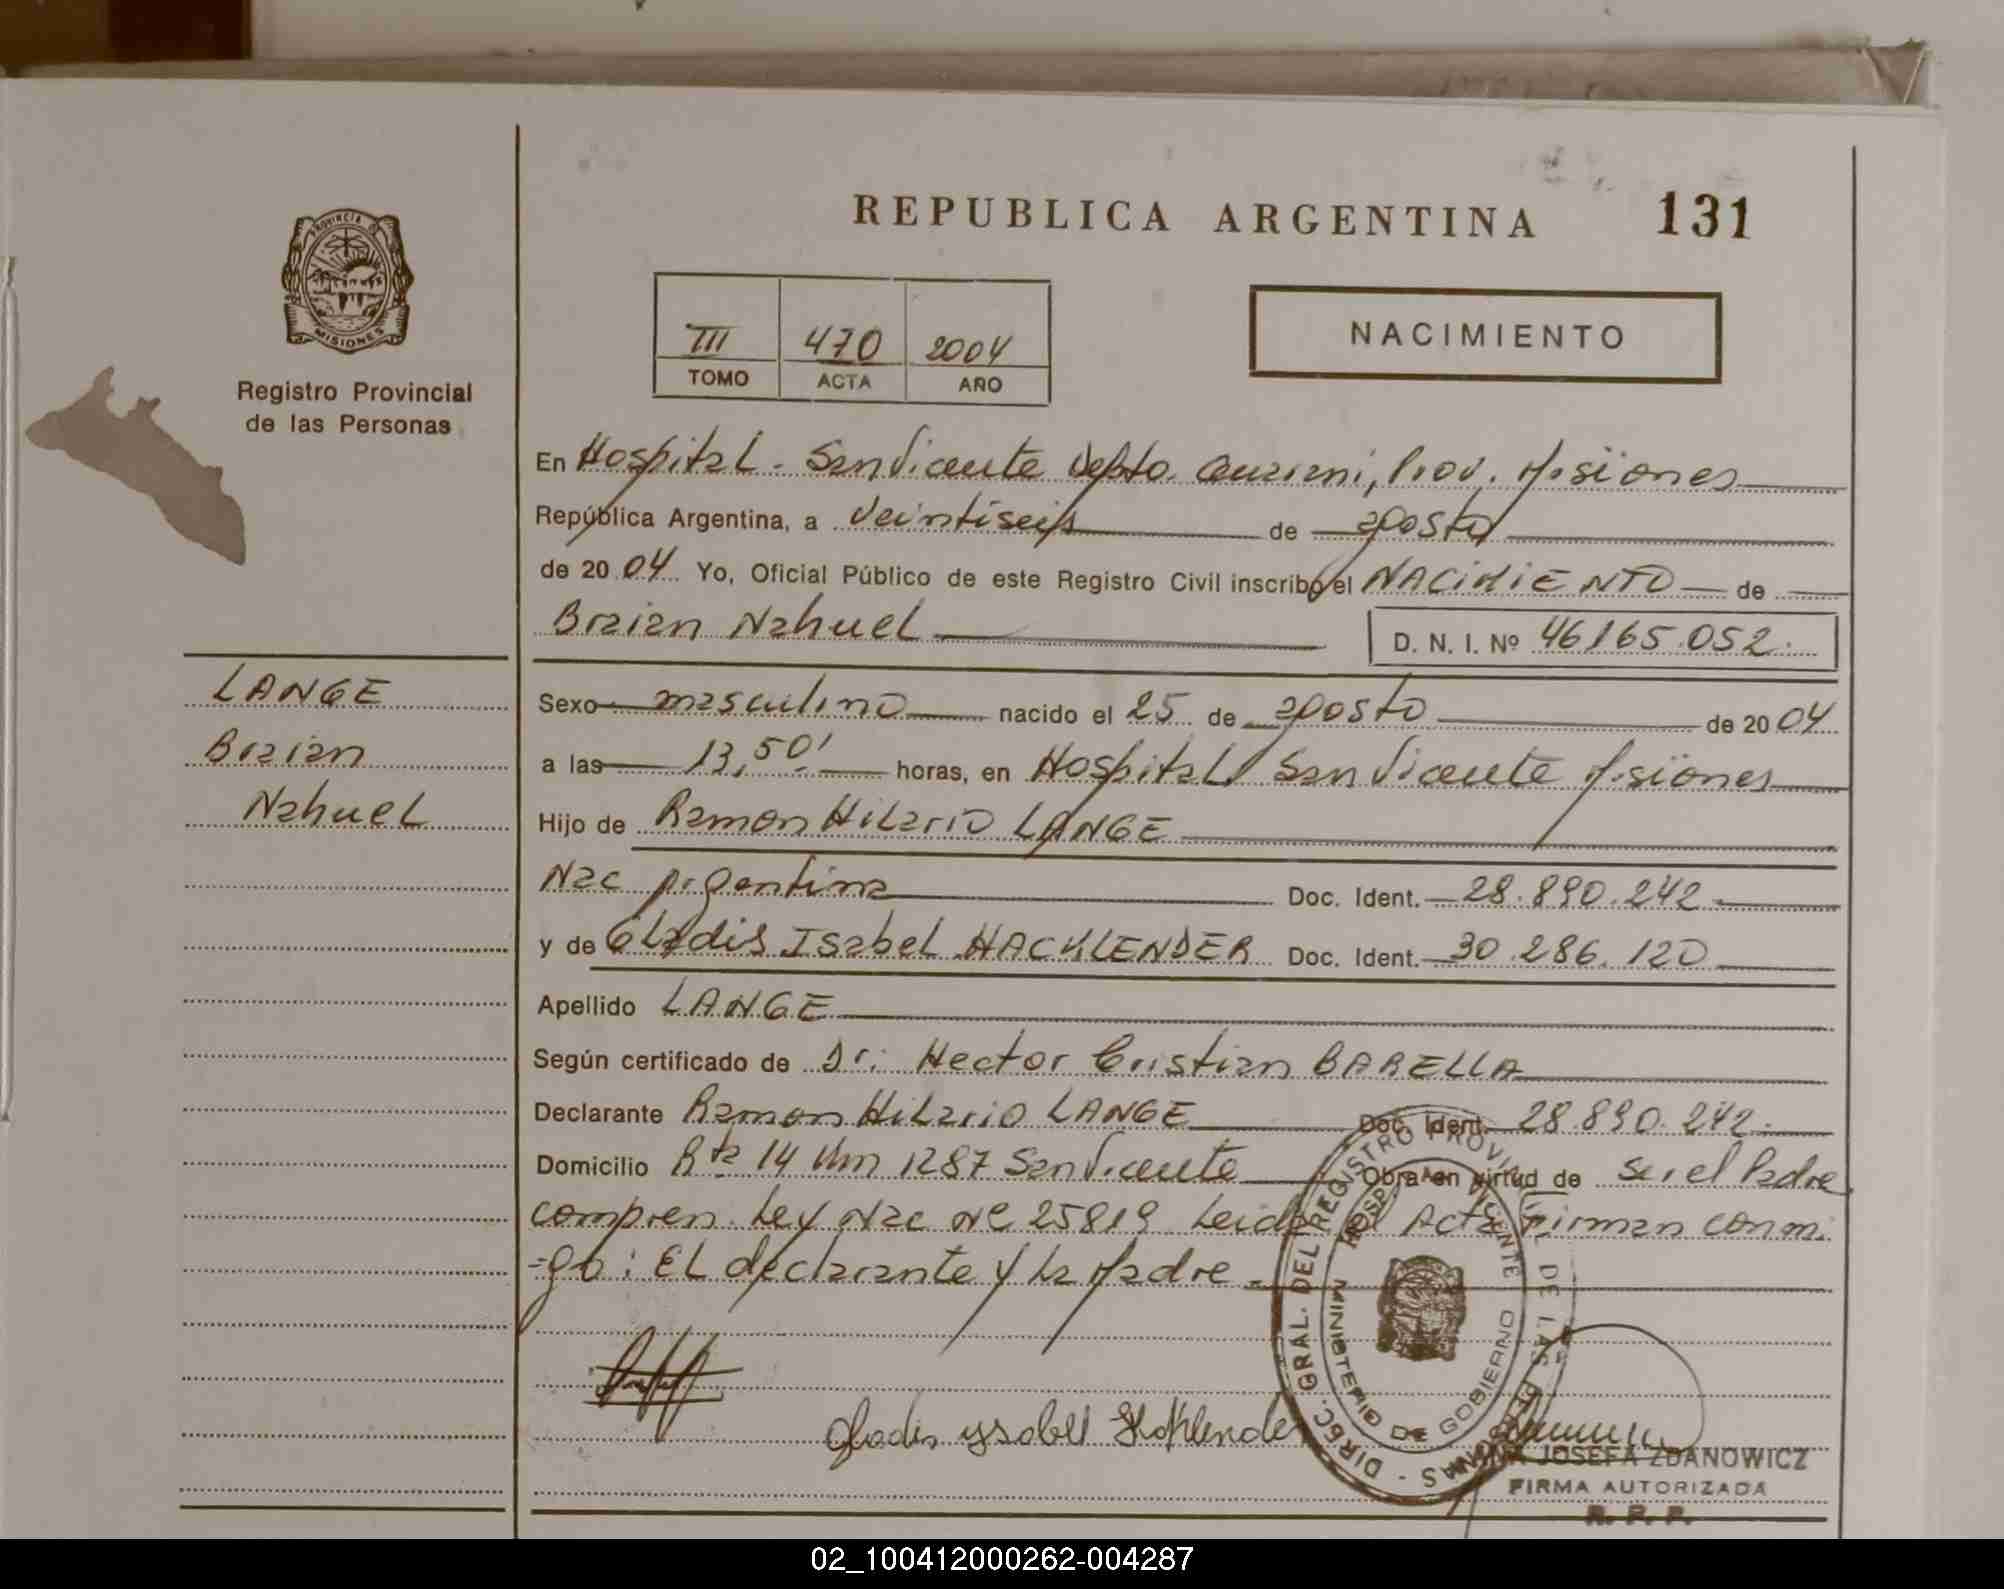 REPUBLICA ARGENTINA 131
PROVINCIA DE
MISIONES
Registro Provincial
de las Personas
III 470 2004
TOMO ACTA AÑO
NACIMIENTO
En Hospital - San Vicente Depto. Guarani, Prov. Misiones
República Argentina, a veintiseis de agosto
de 20 04 Yo, Oficial Público de este Registro Civil inscribo el NACIMIENTO de
Braian Nahuel
D. N. I. Nº 46165.052.
LANGE
Braian
Nahuel
Sexo masculino nacido el 25 de agosto de 20 04
a las 13,50' horas, en Hospital San Vicente Misiones
Hijo de Ramon Hilario LANGE
Nac Argentina Doc. Ident. 28.890.242
y de Gladis Isabel HACKLENDER Doc. Ident. 30.286.120
Apellido LANGE
Según certificado de Dr: Hector Cristian BARELLA
Declarante Ramon Hilario LANGE Doc. Ident. 28.890.242.
Domicilio Rta 14 Km 1287 San Vicente Obra en virtud de ser el Padre
compren. Ley Nac Nº 25819 Leida el Acta Firman conmi
-go: El declarante y la Madre.
Gladis ysabel
DIREC. GRAL. DEL REGISTRO PROVINCIAL DE LAS PERSONAS
MINISTERIO DE GOBIERNO
JOSEFA ZDANOWICZ
FIRMA AUTORIZADA
R. P. P.
02_100412000262-004287